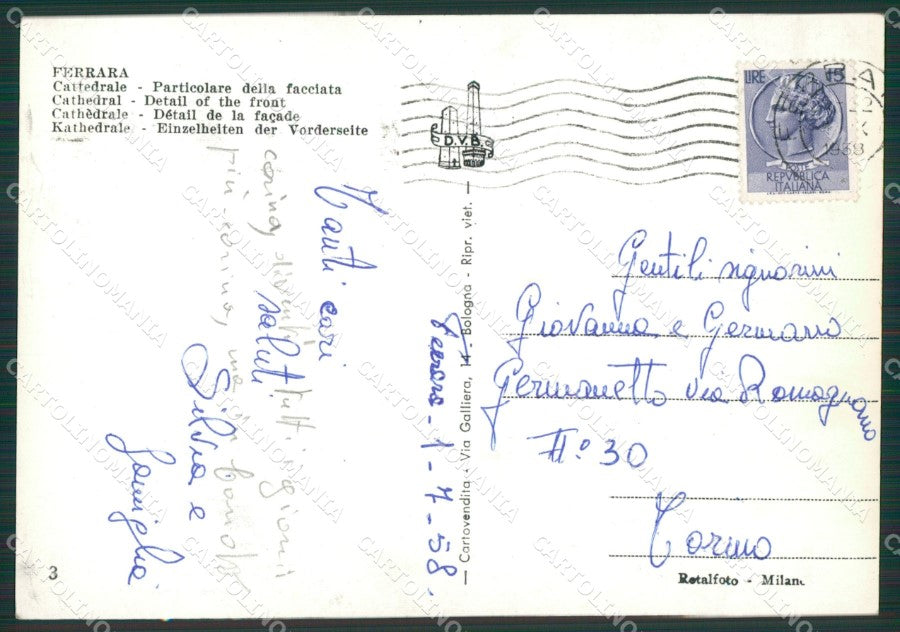 FERRARA
Cattedrale - Particolare della facciata
Cathedral - Detail of the front
Cathèdrale - Détail de la façade
Kathedrale - Einzelheiten der Vorderseite
D.V.B.
LIRE 15
POSTE
REPVBBLICA
ITALIANA
1958
Tanti cari
saluti
Silvia e
famiglia
carina, tutti i giorni
più carina, ma
Ferrara - 1-7-58.
Cartovendita - Via Galliera, 14 - Bologna - Ripr. viet.
Gentili signorini
Giovanna e Germano
Germanetto via Romagnano
N° 30
Torino
3
Rotalfoto - Milano
CARTOLINOMANIA